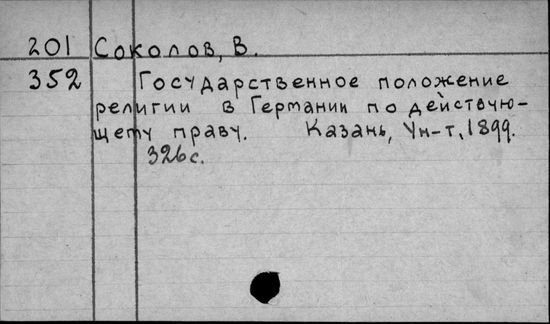 201 Соколов, В.
352 Государственное положение
религии в Германии по действую-
щему праву. Казань, Ун-т, 1899.
326 с.